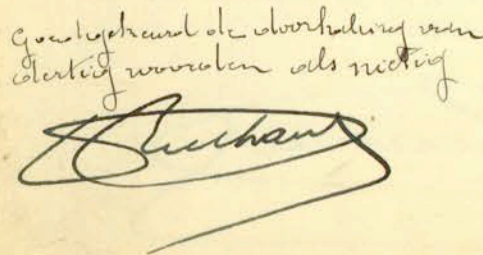 Goedgekeurd de doorhaling van
dertig woorden als nietig